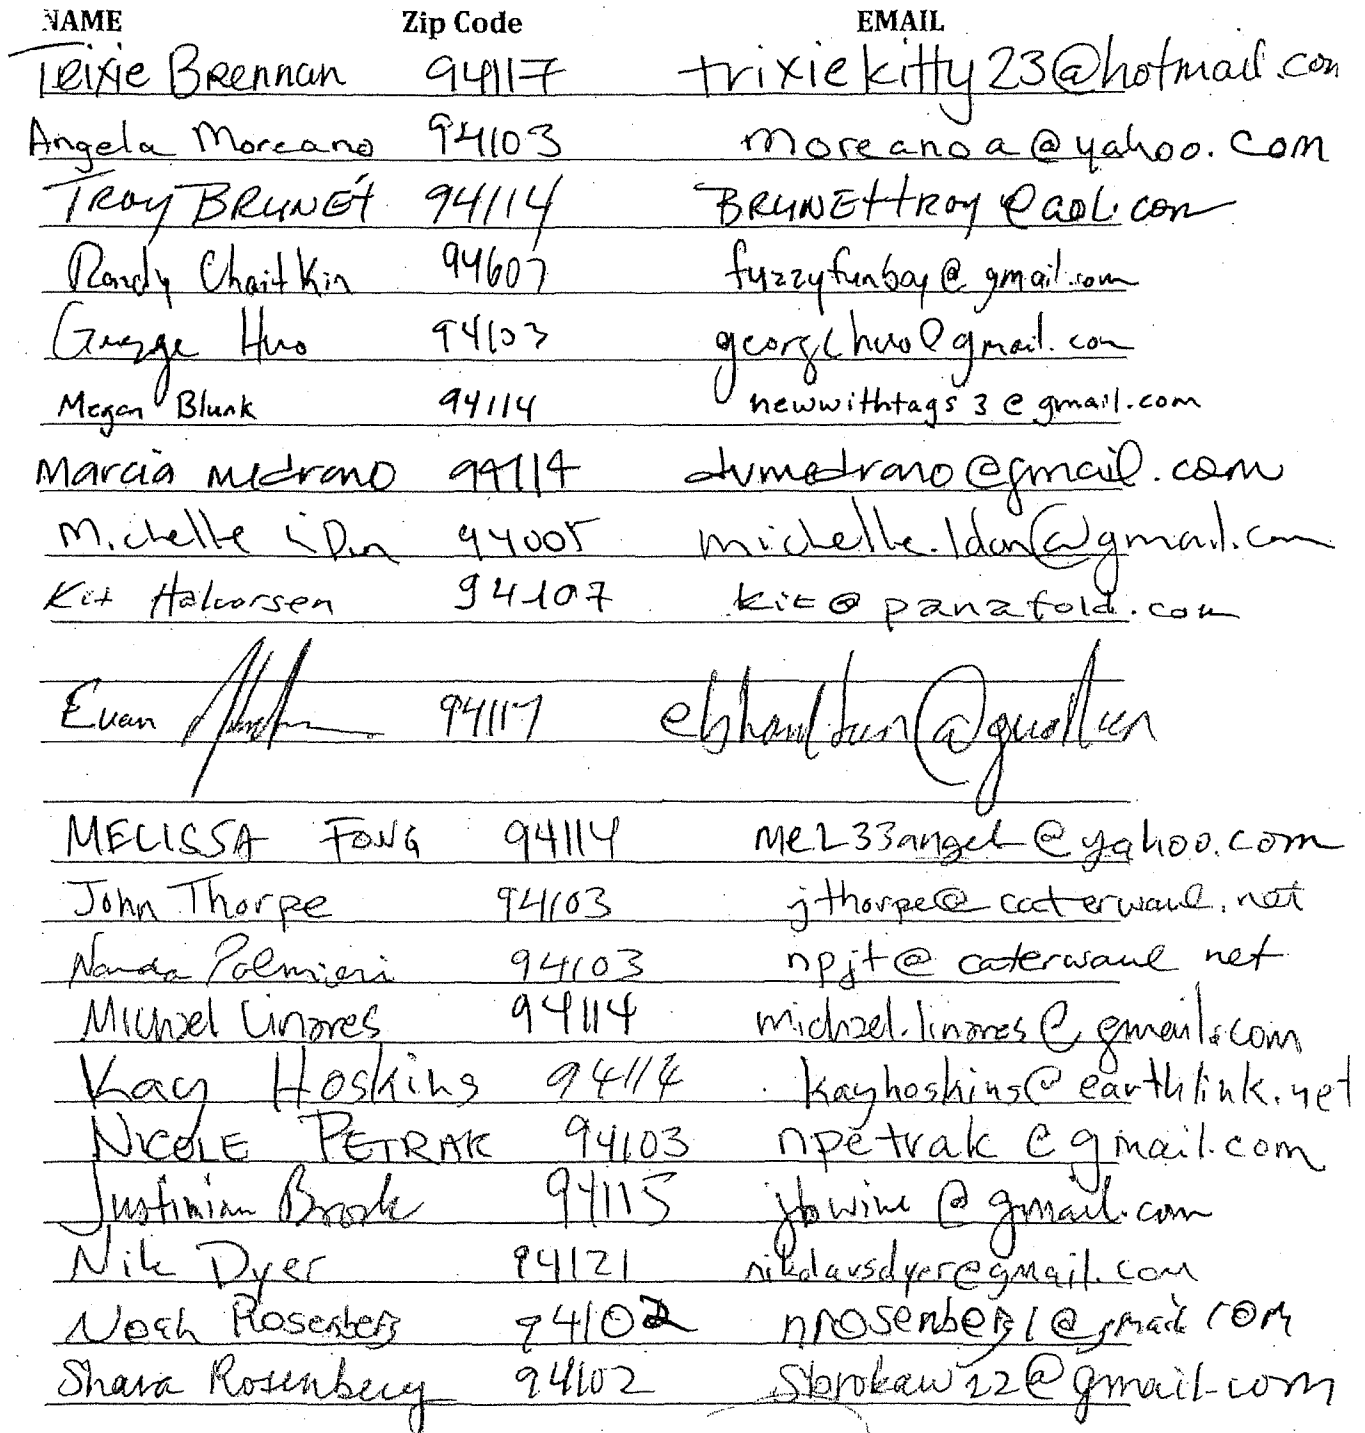 NAME Zip Code EMAIL
Trixie Brennan 94117 trixiekitty23@hotmail.com
Angela Moreano 94103 moreanoa@yahoo.com
TROY BRUNET 94114 BRUNETTROY@aol.com
Randy Chaitkin 94607 fuzzyfunboy@gmail.com
George Huo 94103 georgehuo@gmail.com
Megan Blunk 94114 newwithtags3@gmail.com
Marcia Medrano 94114 dvmedrano@gmail.com
Michelle 94005
Kit Halvorsen 94107 kit@panafold.com
Evan 94117
MELISSA FONG 94114 mel33angel@yahoo.com
John Thorpe 94103 jthorpe@caterwaul.net
Nanda Palmieri 94103 npjt@caterwaul net
Michael Linares 94114 michael.linares@gmail.com
Kay Hoskins 94114 kayhoskins@earthlink.net
NICOLE PETRAK 94103 npetrak@gmail.com
Justinian 94115 jbwine@gmail.com
Nik Dyer 94121 niklausdyer@gmail.com
Noah Rosenberg 94102 nrosenberg1@gmail com
Shara Rosenberg 94102 sbrokaw22@gmail.com